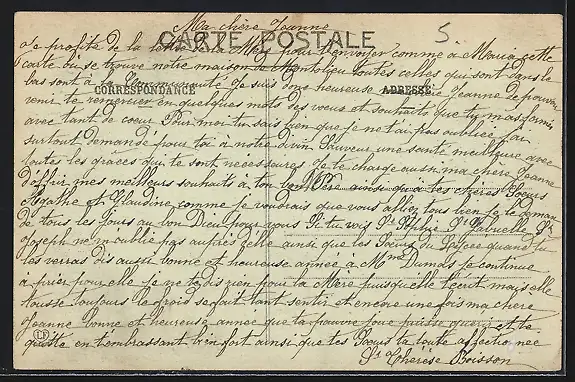 Ma chère Jeanne
CARTE POSTALE
5
Je profite de la lettre de ma Mère pour t'envoyer comme à Maria cette
carte où se trouve notre maison de Montolieu toutes celles qui sont dans le
bas sont à la Je suis donc heureuse chère Jeanne de pouvoir
CORRESPONDANCE
ADRESSE
venir te remercier en quelques mots des voeux et souhaits que tu m'as formés
avec tant de coeur. Pour moi tu sais bien que je ne t'ai pas oubliée j'ai
surtout demandé pour toi à notre divin Sauveur une santé meilleure avec
toutes les grâces qui te sont nécessaires Je te charge aussi ma chère Jeanne
d'offrir mes meilleurs souhaits à ton bon Père ainsi qu'à tes chères Soeurs
Agathe et Claudine comme je voudrais que vous alliez tous bien je le demande
de tous les jours au bon Dieu pour vous Si tu vois Sr Sophie Sr Sr
Joseph ne m'oublie pas auprès d'elle ainsi que les Soeurs du quand tu
les verras dis aussi bonne et heureuse année à Mme Dumas je continue
à prier pour elle je ne te dis rien pour la Mère puisqu'elle t'écrit mais elle
tousse toujours le froid se fait tant sentir et encore une fois ma chère
Jeanne bonne et heureuse année que ta pauvre joue puisse guérir et te
quitte en t'embrassant bien fort ainsi que tes Soeurs ta toute affectionnée
Sr Thérèse Boisson